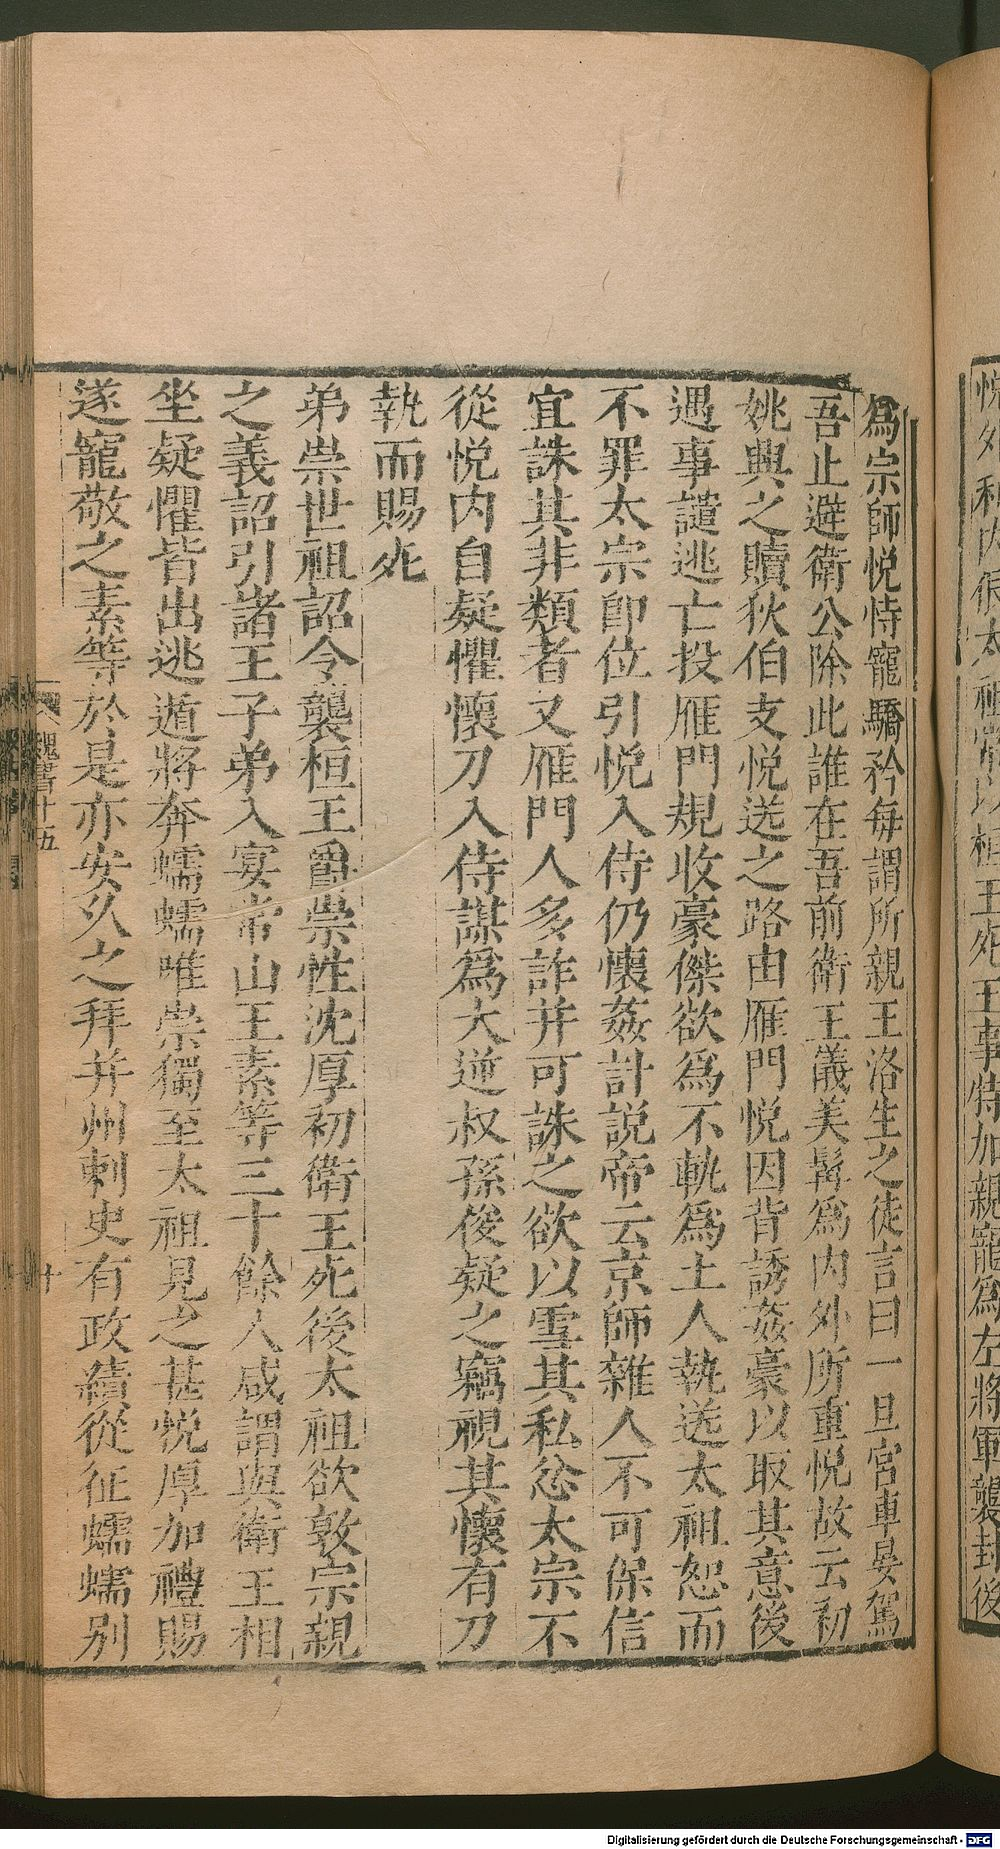 悅外和內佷太祖常以桓王死王事特加親寵爲左將軍襲封後
爲宗師悅恃寵驕矜每謂所親王洛生之徒言曰一旦宮車晏駕
吾止避衛公除此誰在吾前衛王儀美髯爲內外所重悅故云初
姚興之贖狄伯支悅送之路由雁門悅因背誘姦豪以取其意後
遇事譴逃亡投雁門規收豪傑欲爲不軌爲土人執送太祖恕而
不罪太宗卽位引悅入侍仍懷姦計說帝云京師雜人不可保信
宜誅其非類者又雁門人多詐并可誅之欲以雪其私忿太宗不
從悅內自疑懼懷刀入侍謀爲大逆叔孫俊疑之竊視其懷有刀
執而賜死
弟崇世祖詔令襲桓王爵崇性沈厚初衛王死後太祖欲敦宗親
之義詔引諸王子弟入宴常山王素等三十餘人咸謂與衛王相
坐疑懼皆出逃遁將奔蠕蠕唯崇獨至太祖見之甚悅厚加禮賜
遂寵敬之素等於是亦安久之拜并州刺史有政績從征蠕蠕別
魏書十五
十
Digitalisierung gefördert durch die Deutsche Forschungsgemeinschaft - DFG